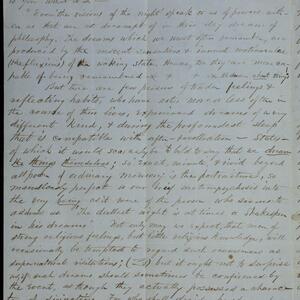 to you what is –
"Even the visions of the night speak to us of powers within
us that
philosophy. The dreams which we most often remember, are
produced by the nascent sensations & inward motiunculae
(the fluxions) of the waking state. Hence, too they are more ca-
pable of being remembered
But there are few persons of tender feelings &
reflecting habits, who have not, more or less often in
the course of their lives, experienced dreams of a very
different kind, & during the profoundest sleep
that is compatible with after-recollection – states
of which it would scarcely be too bold to say that we dream
the things themselves; so exact, minute, & vivid beyond
all power of ordinary memory is the portraiture, so
marvellously perfect is our brief metempsychosis into
the very being as it were of the person who seems to
address us. The dullest wight is at times a Shakespeare
in his dreams. Not only may we expect, that men of
strong religious feelings, but little religious knowledge, will
occasionally be tempted to regard such occurrences as
supernatural visitations; but it ought not to surprise
us, if such dreams should sometimes be confirmed by
the event, as though they actually possessed a character
of divination. For who shall